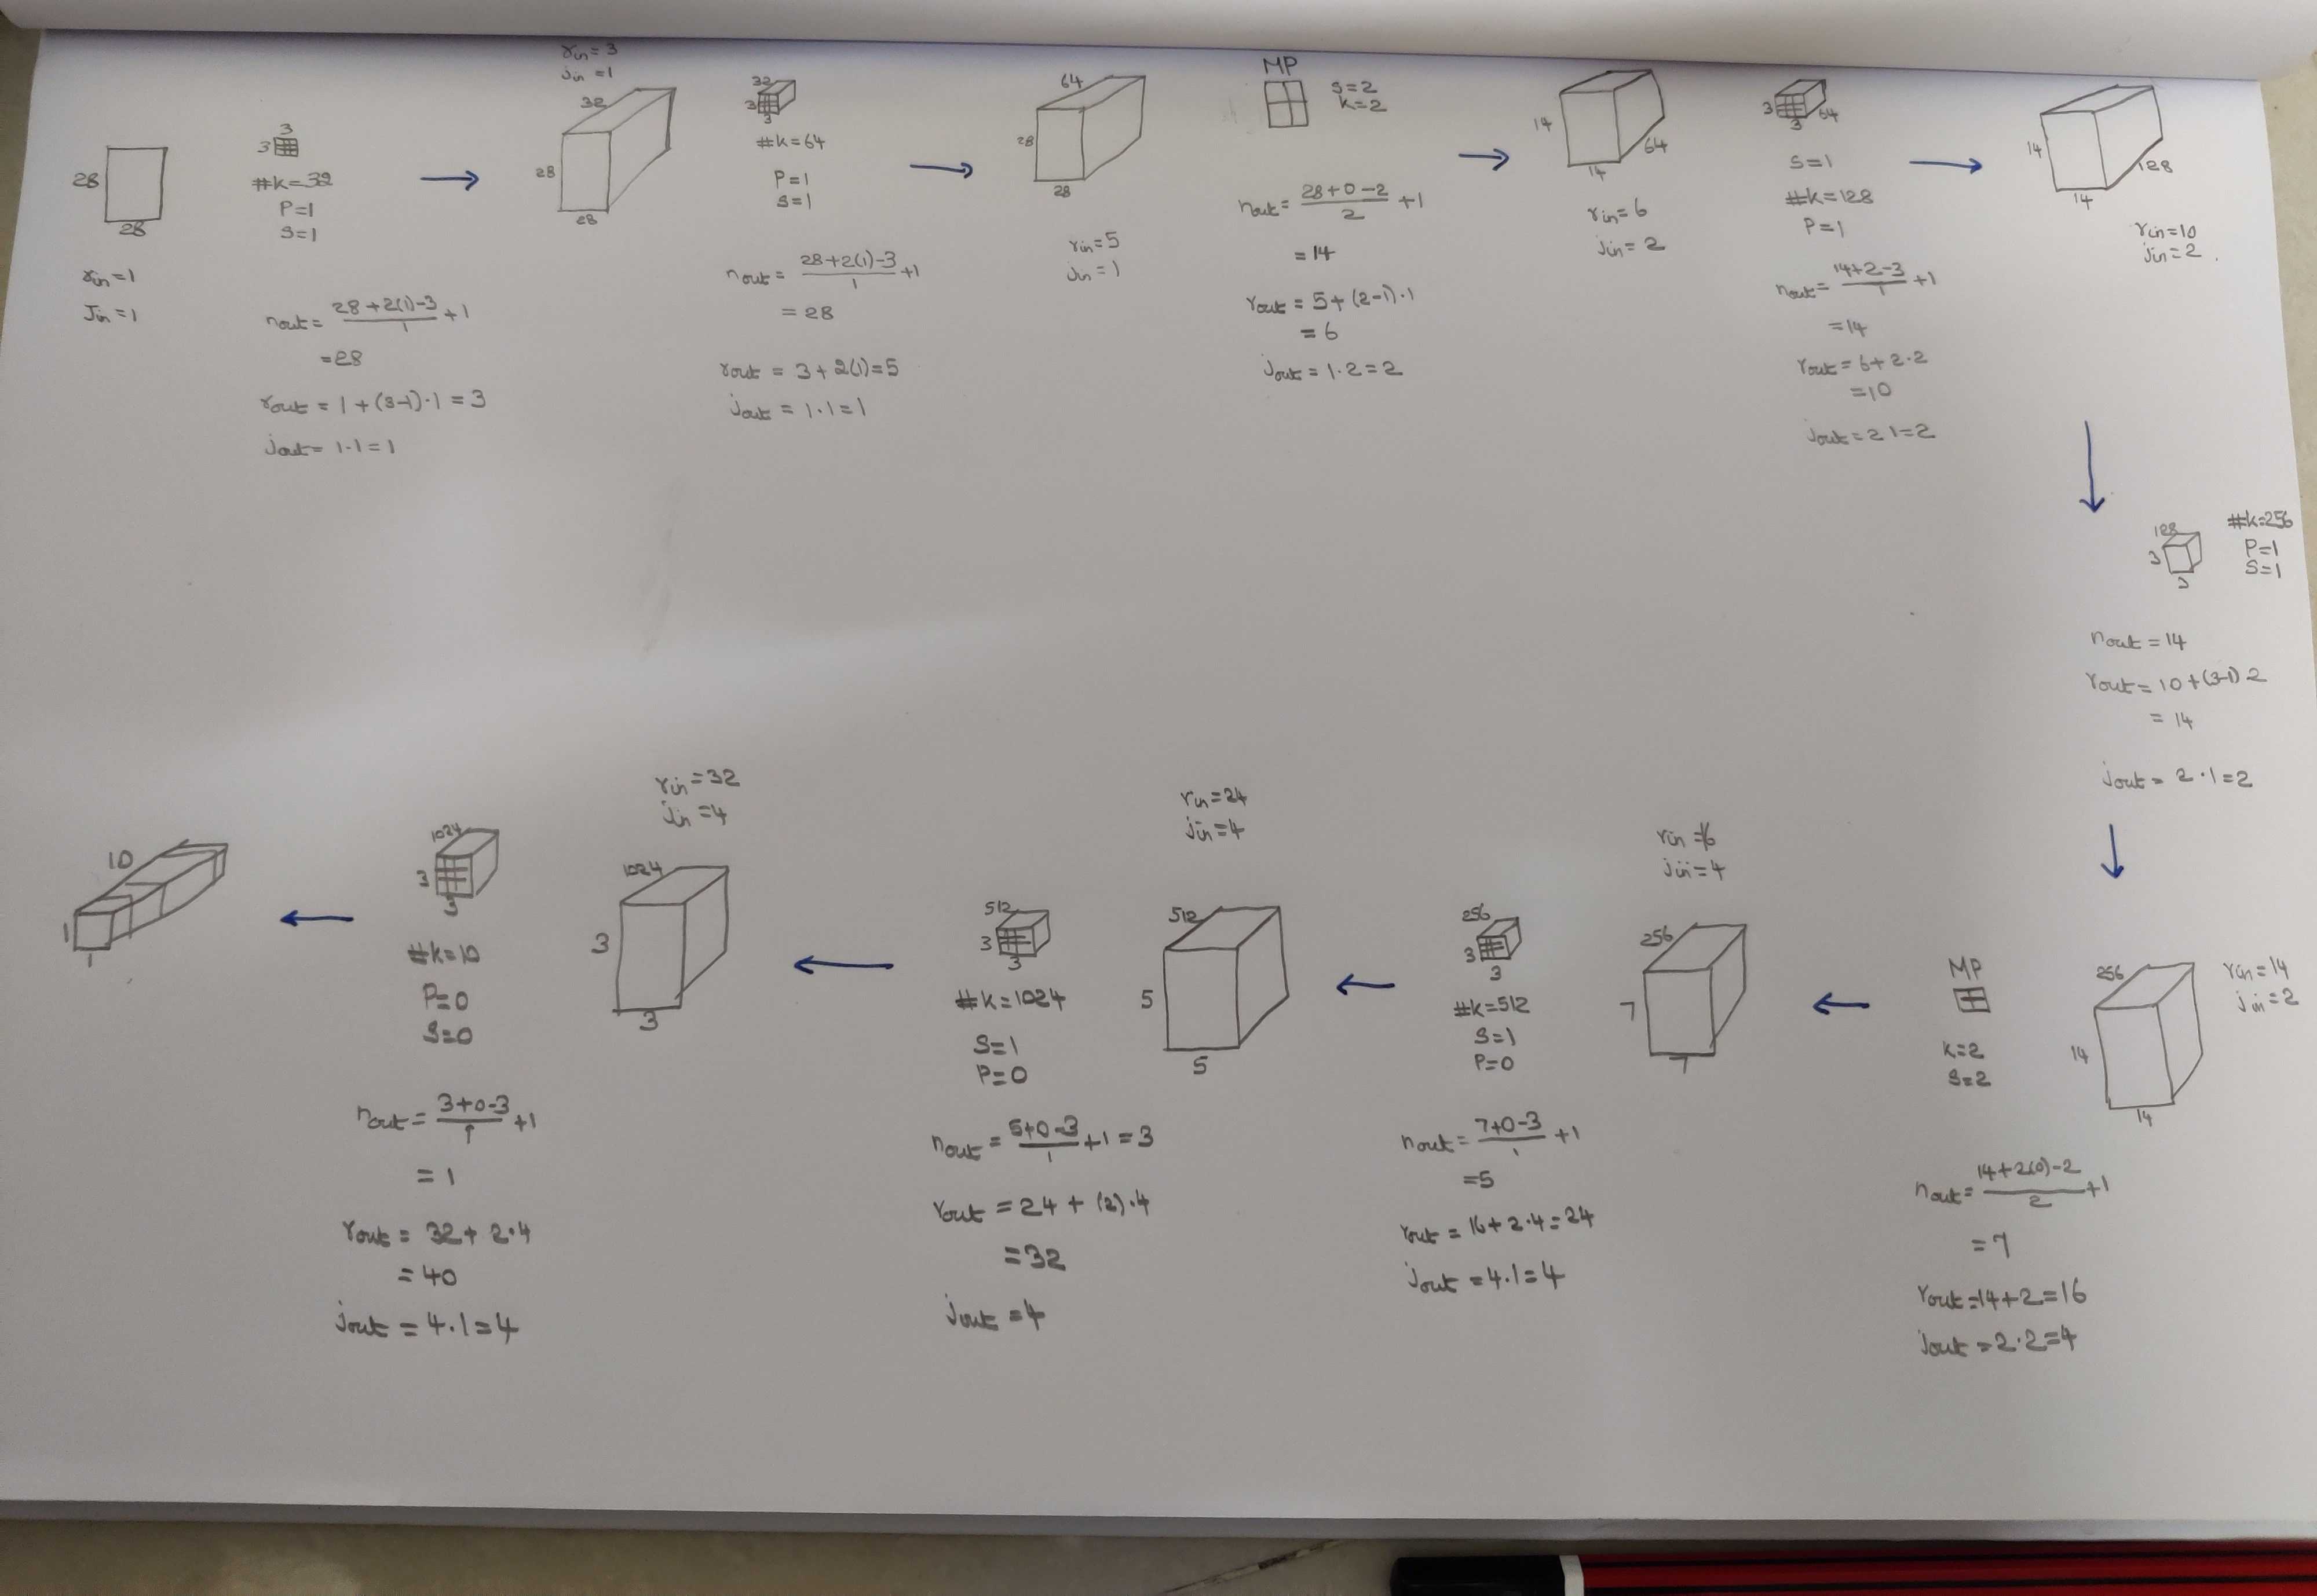 28
28
rin=1
Jin=1
3
3
#k=32
P=1
S=1
nout= 28+2(1)-3/1 +1
=28
rout = 1+(3-1)·1 = 3
jout= 1·1=1
rin=3
jin=1
32
28
28
32
3
3
#k=64
P=1
S=1
nout= 28+2(1)-3/1 +1
= 28
rout = 3+2(1)=5
jout = 1·1=1
64
28
28
rin=5
jin=1
MP
S=2
k=2
nout= 28+0-2/2 +1
= 14
rout = 5+(2-1)·1
= 6
jout = 1·2=2
14
14
64
rin=6
jin=2
3
3
64
S=1
#k=128
P=1
nout= 14+2-3/1 +1
=14
rout=6+2·2
=10
jout=2 1=2
14
14
128
rin=10
jin=2.
128
3
3
#k=256
P=1
S=1
nout=14
rout=10+(3-1)2
= 14
jout= 2·1=2
256
14
14
rin=14
jin=2
MP
k=2
S=2
nout= 14+2(0)-2/2 +1
=7
rout=14+2=16
jout=2·2=4
rin=16
jin=4
256
7
7
256
3
3
#k=512
S=1
P=0
nout= 7+0-3/1 +1
=5
rout = 16+2·4=24
jout=4·1=4
rin=24
jin=4
512
5
5
512
3
3
#k=1024
S=1
P=0
nout= 5+0-3/1 +1=3
rout = 24 + (2)·4
=32
jout=4
rin=32
jin=4
1024
3
3
1024
3
3
#k=10
P=0
S=0
nout= 3+0-3/1 +1
= 1
rout= 32+ 2·4
=40
jout = 4·1=4
10
1
1